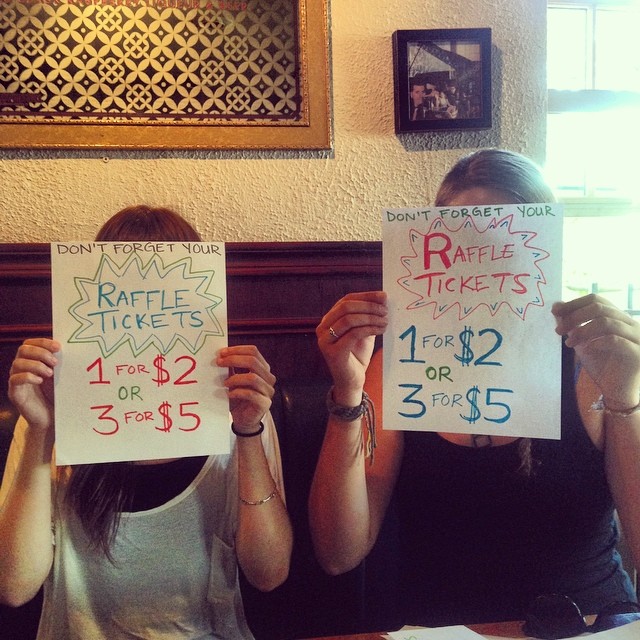 DON'T FORGET YOUR
RAFFLE
TICKETS
1 FOR $2
OR
3 FOR $5
DON'T FORGET YOUR
RAFFLE
TICKETS
1 FOR $2
OR
3 FOR $5